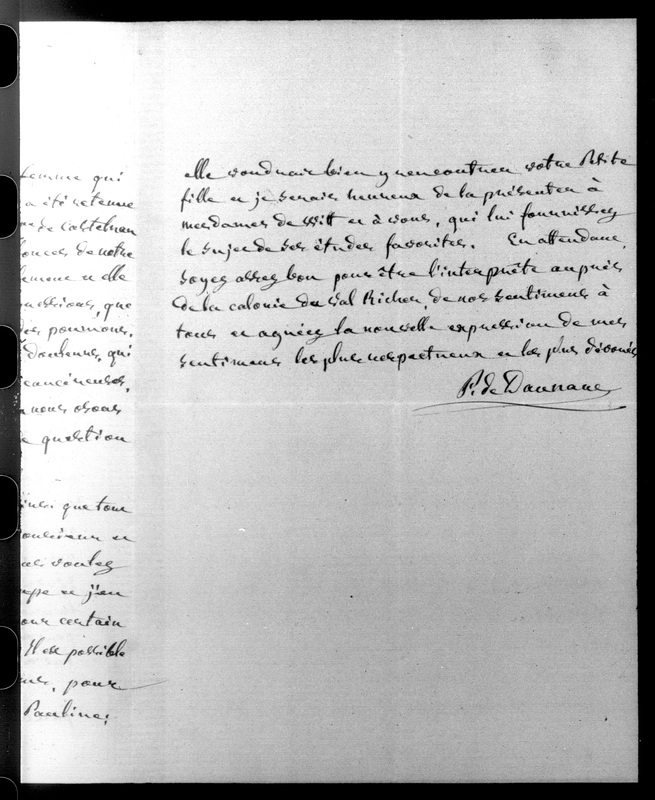 femme qui
a été retenue
de Castelnau
de notre
femme et elle
que
des poumons.
qui
cancéreuses,
nous osons
question
que tout
et
voulez
et j'en
certain
Il est possible
pour
Pauline,
elle voudrait bien y rencontrer votre Petite
fille et je serais heureux de la présenter à
mesdames de Witt et à vous, qui lui fournissez
le sujet de ses études favorites. En attendant,
soyez assez bon pour être l'interprète auprès
de la colonie du Val Richer, de nos sentiments à
tous et agréez la nouvelle expression de mes
sentiments les plus respectueux et les plus dévoués
P. de Daunant